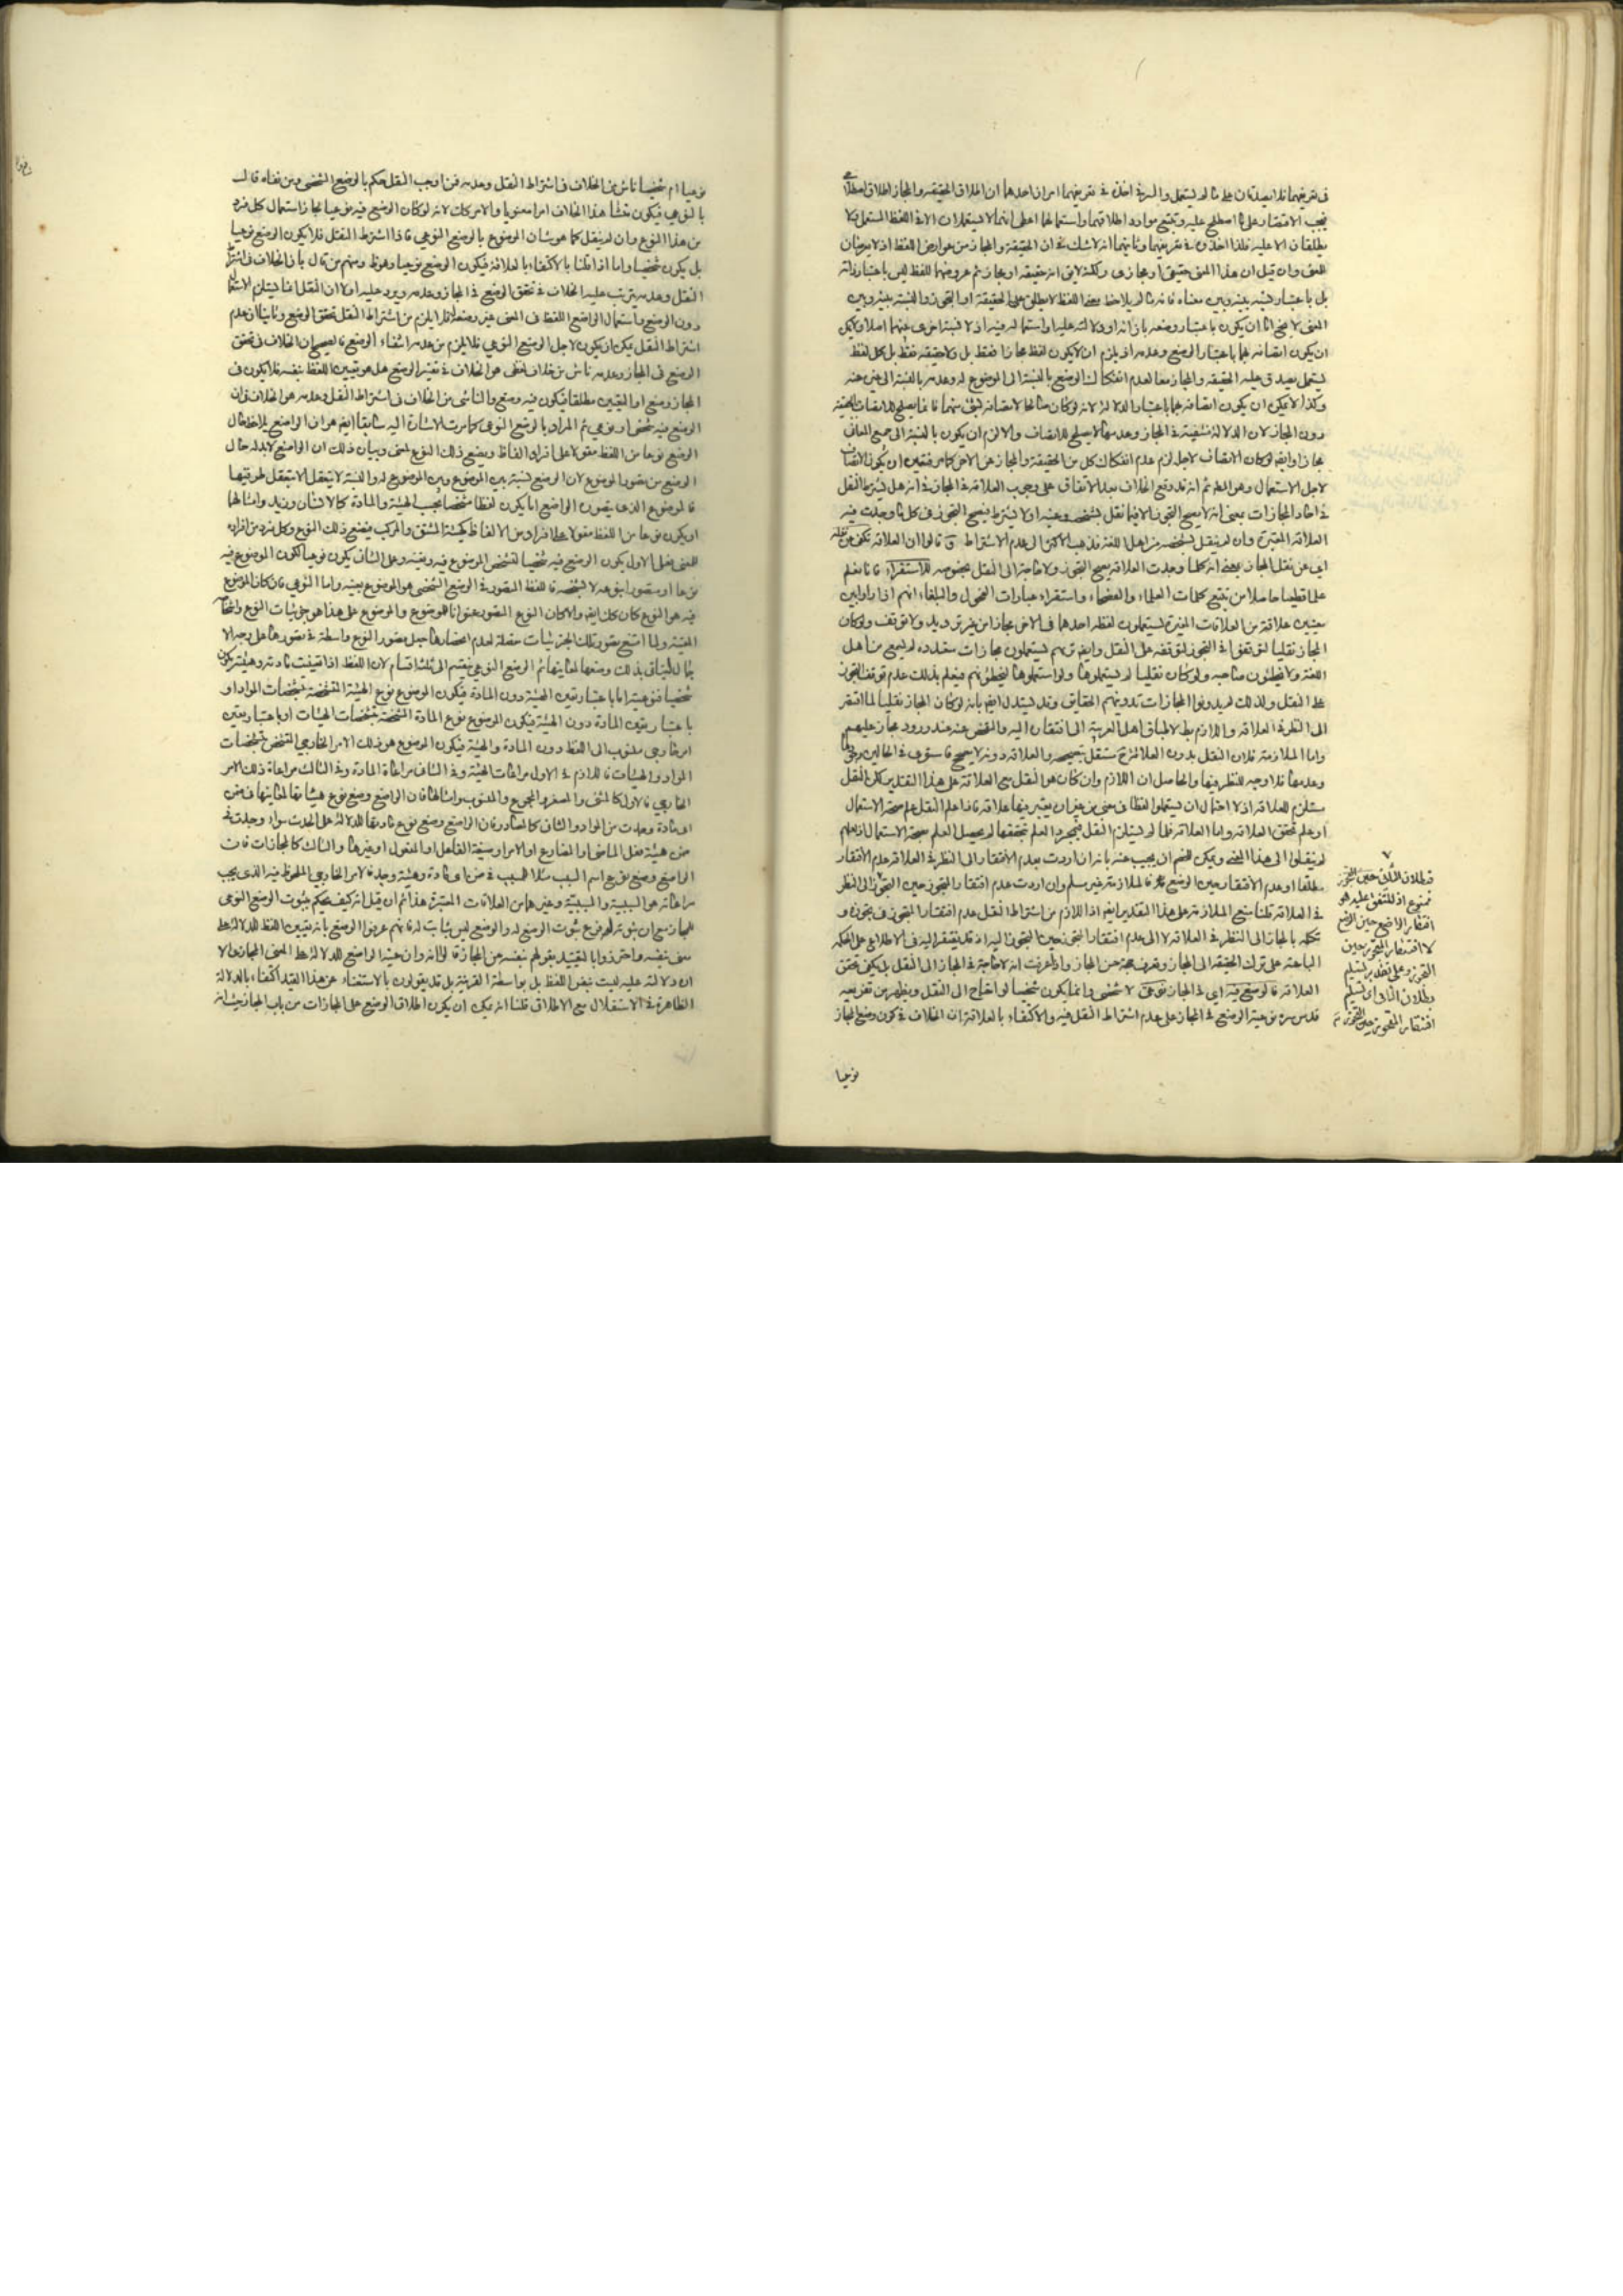 في تعريفهما فلا يصدقان على ما لم يستعمل والسر في اخذه في تعريفهما امران احدهما ان اطلاق الحقيقة والمجاز اطلاق اصطلاحي
فيجب الاقتصار على ما اصطلح عليه وتتبع موارد اطلاقهما واستعمالهما اعطى انهما لا يستعملان الا في اللفظ المستعمل ولا
يطلقان الا عليه فلذا اخذوه في تعريفهما وثانيهما انه لا شك في ان الحقيقة والمجاز من عوارض اللفظ اذ لا يعرضان
للمعنى وان قيل ان هذا المعنى حقيقي او مجازي ولكنه لا يق انه حقيقة او مجاز ثم عروضهما للفظ ليس باعتبار ذاته
بل باعتبار نسبة بينه وبين معناه فانه ما لم يلاحظ معنى اللفظ لا يطلق على الحقيقة او التجوز والنسبة بينه وبين
المعنى لا يخ اما ان يكون باعتبار وضعه بازائه او دلالته عليه او استعماله فيه اذ لا نسبة اخرى بينهما اصلا ولا يمكن
ان يكون اتصافه بهما باعتبار الوضع وحده اذ يلزم ان لا يكون لفظ مجازا فقط بل ولا حقيقة فقط بل كل لفظ
يستعمل يصدق عليه الحقيقة والمجاز معا لعدم انفكاك الوضع بالنسبة الى الموضوع له وعدمه بالنسبة الى غيره عنه
وكذا لا يمكن ان يكون اتصافه بهما باعتبار الدلالة لانه لو كان
دون المجاز لان الدلالة منتفية في المجاز وعدمها لا يصلح للاتصاف والا لزم ان يكون بالنسبة الى جميع المعاني
مجازا وايضا لو كان الاتصاف لاجله لزم عدم انفكاك كل من الحقيقة والمجاز عن الاخر كما مر فتعين ان يكون الاتصاف
لاجل الاستعمال وهو المط ثم انه قد وقع الخلاف بعد الاتفاق على وجوب العلاقة في المجاز في انه هل يشترط النقل
في احاد المجازات بمعنى انه لا يصح التجوز الا فيما نقل بشخصه وعينه او لا يشترط فيصح التجوز في كل ما وجدت فيه
العلاقة المعتبرة وان لم ينقل بشخصه من اهل اللغة فذهب الاكثر الى عدم الاشتراط وقالوا ان العلاقة تكفي عن نقله
اي عن نقل المجاز بمعنى انه كلما وجدت العلاقة يصح التجوز ولا حاجة الى النقل بخصوصه للاستقراء فانا نعلم
علما قطعيا حاصلا من تتبع كلمات العلماء والفصحاء واستقراء عبارات الفحول والبلغاء انهم اذا راوا بين
معنيين علاقة من العلاقات المعتبرة يستعملون لفظ احدهما في الاخر مجازا من غير ترديد ولا توقف ولو كان
المجاز نقليا لتوقفوا في التجوز لتوقفه على النقل وايضا تريهم يستعملون مجازات متعددة لم يسمع من اهل
اللغة ولا يخطئون صاحبه ولو كان نقليا لم يستعملوها ولو استعملوها لخطئوهم فيعلم بذلك عدم توقف التجوز
على النقل ولذلك لم يدونوا المجازات تدوينهم الحقايق وقد يستدل ايضا بانه لو كان المجاز نقليا لما افتقر
الى النظر في العلاقة واللازم بط لاطباق اهل العربية الى افتقاره اليه والفحص عنه عند ورود مجاز عليهم
واما الملازمة فلان النقل بدون العلاقة مستقل بتصحيحه والعلاقة دونه لا يصحح فاستوى في الحالين وجودها
وعدمها فلا وجه للنظر فيها والحاصل ان اللازم وان كان هو النقل مع العلاقة على هذا التقدير لكن النقل
مستلزم للعلاقة اذ لا احتمال ان يستعملوا لفظا في معنى من غير ان يعتبر بينهما علاقة فاذا علم النقل علم صحة الاستعمال
او علم تحقق العلاقة واما العلاقة فلما لم يستلزم النقل فبمجرد العلم بتحققها لم يحصل العلم بصحة الاستعمال اذ لعلهم
لم ينقلوا الى هذا المعنى ويمكن للخصم ان يجيب عنه بانه ان اردت بعدم الافتقار الى النظر في العلاقة عدم الافتقار
مطلقا او عدم الافتقار حين الوضع فالملازمة غير مسلم وان اردت عدم افتقار المتجوز حين التجوز الى النظر
في العلاقة قلنا نمنع الملازمة على هذا التقدير ايضا اذ اللازم من اشتراط النقل عدم افتقار المتجوز في تجوزه و
تكلمه بالمجاز الى النظر في العلاقة لا الى عدم افتقار المتجوز حين التجوز اليه اذ قد يفتقر اليه في الاطلاع على الحكمة
الباعثة على ترك الحقيقة الى المجاز وتعرف جهة حسن المجاز واذا عرفت انه لا حاجة في المجاز الى النقل بل يكفي تحقق
العلاقة فالوضع فيه اي في المجاز نوعي لا شخصي وانما يكون شخصيا لو احتاج الى النقل ويظهر من تفريعه
قدس سره نوعية الوضع في المجاز على عدم اشتراط النقل فيه والاكتفاء بالعلاقة ان الخلاف في كون وضع المجاز
نوعيا
فبطلان الثاني حين التجوز
ممنوع اذ المتفق عليه هو
افتقار الواضع حين الوضع
لا افتقار المتجوز حين
التجوز وعلى تقدير تسليم
بطلان الثاني اي تسليم
افتقار المتجوز حين التجوز
نوعيا ام شخصيا ناش من الخلاف في اشتراط النقل وعدمه فمن اوجب النقل حكم بالوضع الشخصي ومن نفاه قال
بالنوعي فيكون منشأ هذا الخلاف امرا معنويا والامر كك لانه لو كان الوضع فيه نوعيا لجاز استعمال كل فرد
من هذا النوع وان لم ينقل كما هو شان الموضوع بالوضع النوعي فاذا اشترط النقل فلا يكون الوضع نوعيا
بل يكون شخصيا واما اذا قلنا بالاكتفاء بالعلاقة فيكون الوضع نوعيا وهو ظ ومنهم من قال بان الخلاف في اشتراط
النقل وعدمه يترتب عليه الخلاف في تحقق الوضع في المجاز وعدمه ويرد عليه اولا ان النقل انما يستلزم الاستعمال
دون الوضع واستعمال الواضع اللفظ في المعنى غير وضعه له فلا يلزم من اشتراط النقل تحقق الوضع وثانيا ان عدم
اشتراط النقل يمكن ان يكون لاجل الوضع النوعي فلا يلزم من عدمه انتفاء الوضع فالصحيح ان الخلاف في تحقق
الوضع في المجاز وعدمه ناش من خلاف لفظي هو الخلاف في تفسير الوضع هل هو تعيين اللفظ بنفسه فلا يكون في
المجاز وضع او التعيين مطلقا فيكون فيه وضع والناشي من الخلاف في اشتراط النقل وعدمه هو الخلاف في ان
الوضع فيه شخصي او نوعي ثم المراد بالوضع النوعي كما مرت الاشارة اليه سابقا ايضا هو ان الواضع يلاحظ حال
الوضع نوعا من اللفظ مقولا على افراد الفاظ ويضع ذلك النوع لمعنى وبيان ذلك ان الواضع لا بد له حال
الوضع من تصور الموضوع لان الوضع نسبة بين الموضوع وبين الموضوع له والنسبة لا يتعقل الا بتعقل طرفيها
فالموضوع الذي يتصوره الواضع اما يكون لفظا مشخصا بحسب الهيئة والمادة كالانسان وزيد وامثالهما
او يكون نوعا من اللفظ مقولا على افراد من الالفاظ كهيئة المشتق والمركب فيضع ذلك النوع وكل فرد من افراده
للمعنى فعلى الاول يكون الوضع فيه شخصيا لتشخص الموضوع فيه وتعينه وعلى الثاني يكون نوعيا لكون الموضوع فيه
نوعا او متصورا بنوعه لا بشخصه فاللفظ المتصور في الوضع الشخصي هو الموضوع بعينه واما النوعي فان كان الموضوع
فيه هو النوع كان كك ايضا والا كان النوع المتصور عنوانا للموضوع والموضوع على هذا هو جزئيات النوع واشخاصه
المعينة ولما امتنع تصور تلك الجزئيات مفصلة لعدم انحصارها جعل تصور النوع واسطة في تصورها على وجه الا
جمال ليتاتى بذلك وضعها لمعانيها ثم الوضع النوعي ينقسم الى ثلثة اقسام لان اللفظ اذا تعينت مادته وهيئته يكون
شخصيا فنوعيته اما باعتبار تعين الهيئة دون المادة فيكون الموضوع نوع الهيئة المتشخصة بتشخصات المواد او
باعتبار تعين المادة دون الهيئة فيكون الموضوع نوع المادة المتشخصة بتشخصات الهيئات او باعتبار تعين
امر خارجي منسوب الى اللفظ دون المادة والهيئة فيكون الموضوع هو ذلك الامر الخارجي المتشخص بتشخصات
المواد والهيئات فاللازم في الاول مراعات الهيئة وفي الثاني مراعاة المادة وفي الثالث مراعاة ذلك الامر
الخارجي فالاول كالمثنى والمصغر والمجموع والمنسوب وامثالها فان الواضع وضع نوع هيئاتها لمعانيها في ضمن
اي مادة وجدت من المواد والثاني كالمصادر فان الواضع وضع نوع مادتها للدلالة على الحدث سواء وجدت في
ضمن هيئة فعل الماضي او المضارع او الامر او صيغة الفاعل او المفعول او غيرها والثالث كالمجازات فان
الواضع وضع نوع اسم السبب مثلا للمسبب في ضمن اي مادة وهيئة وجد فالامر الخارجي الملحوظ فيه الذي يجب
مراعاته هو السببية والمسببية وغيرهما من العلاقات المعتبرة هذا ثم ان قيل انه كيف يحكم بثبوت الوضع النوعي
للمجاز مع ان ثبوته له فرع ثبوت الوضع له والوضع ليس بثابت له فانهم عرفوا الوضع بانه تعيين اللفظ للدلالة على
معنى بنفسه واحترزوا بالتقييد بقولهم بنفسه عن المجاز قالوا انه وان عينه الواضع للدلالة على المعنى المجازي الا
ان دلالته عليه ليست بنفس اللفظ بل بواسطة القرينة بل قد يقولون بالاستغناء عن هذا القيد اكتفاء بالدلالة
الظاهرة في الاستقلال مع الاطلاق قلنا انه يمكن ان يكون اطلاق الوضع على المجازات من باب المجاز حيث انه